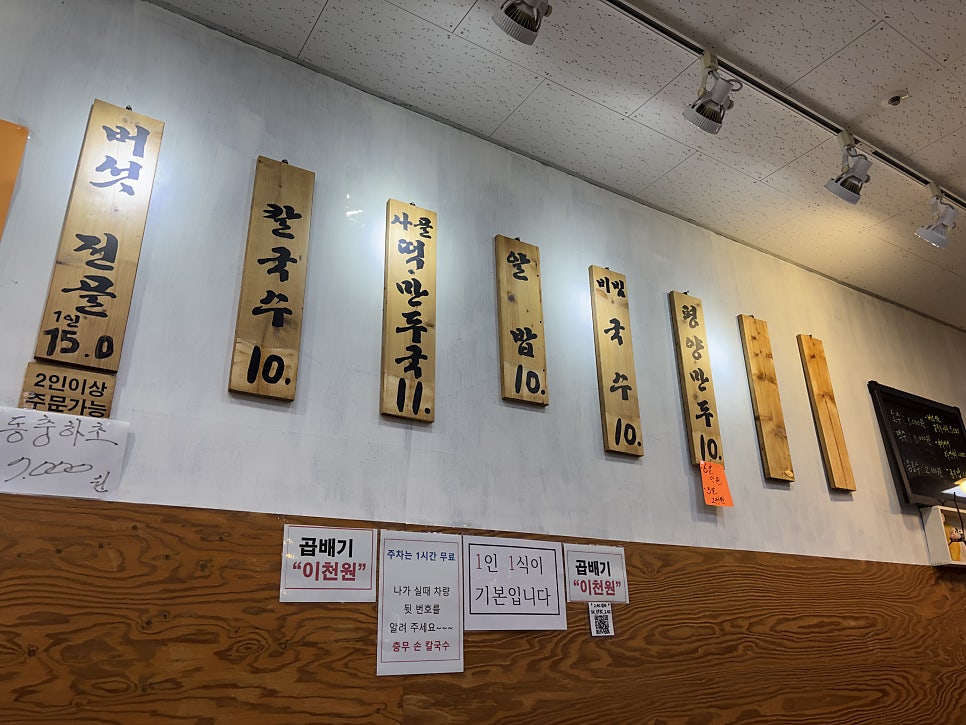 버섯
전골
1인
15.0
2인이상
주문가능
동충하초
7.000원
칼국수
10.
사골
떡.만두국
11.
알밥
10.
비빔
국수
10.
평양만두
10.
곱배기
“이천원”
주차는 1시간 무료
나가 실때 차량
뒷 번호를
알려 주세요~~~
충무 손 칼국수
1인 1식이
기본입니다
곱배기
“이천원”